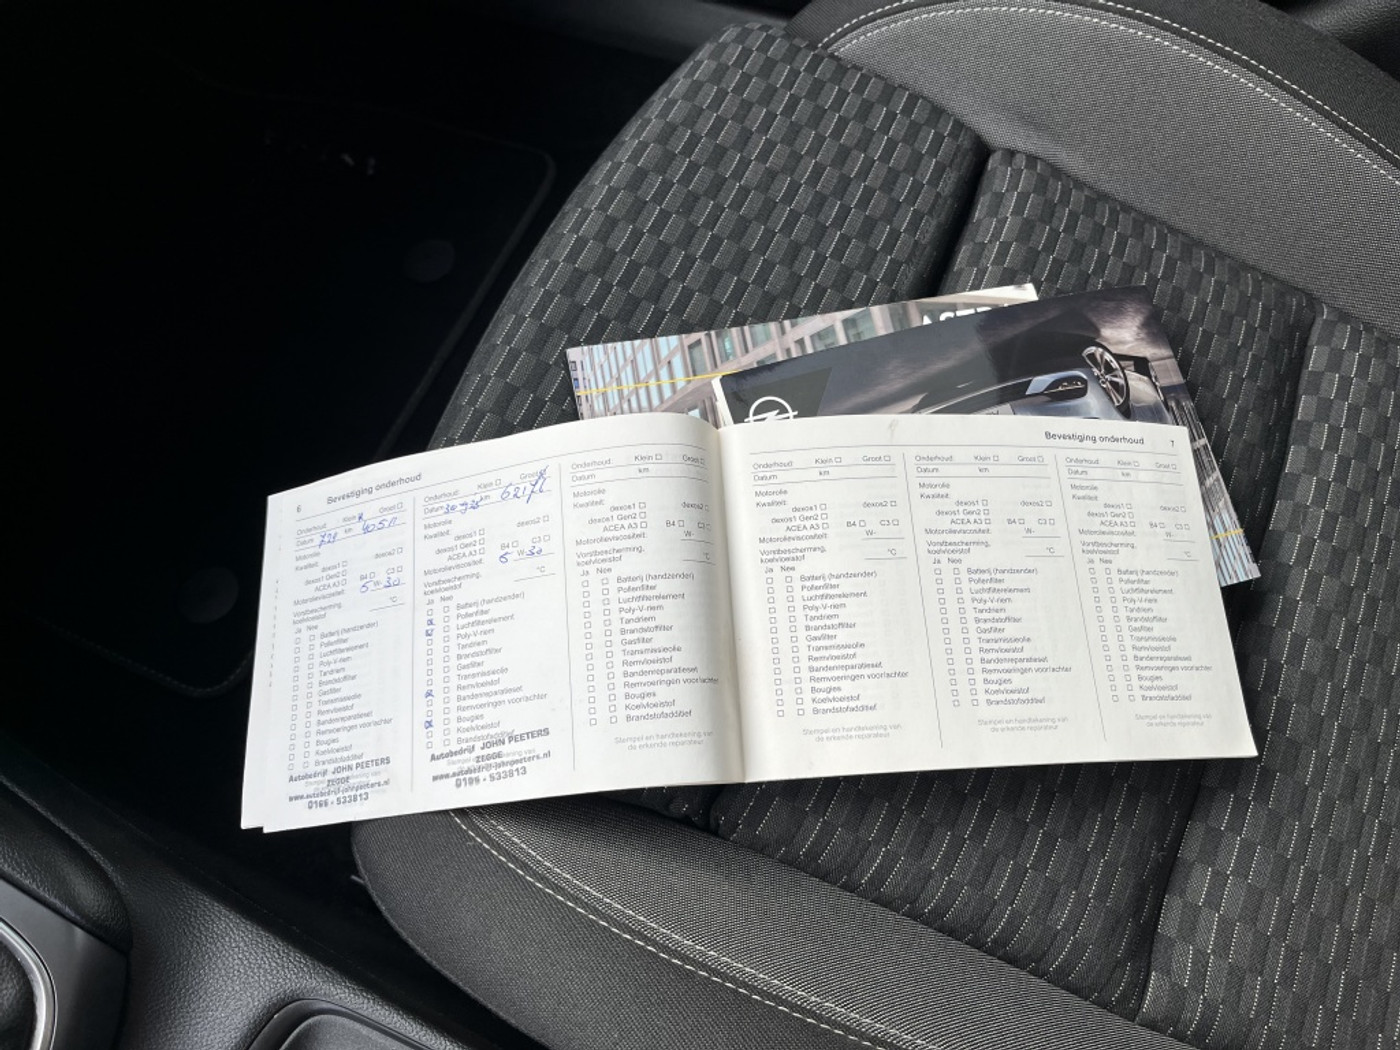 ASTRA
6 Bevestiging onderhoud
Onderhoud: Klein Groot
Datum km
Motorolie
Kwaliteit: dexos1 dexos2
dexos1 Gen2
ACEA A3 B4 C3
Motorolieviscositeit: 5 W- 30
Vorstbescherming,
koelvloeistof °C
Ja Nee
Batterij (handzender)
Pollenfilter
Luchtfilterelement
Poly-V-riem
Tandriem
Brandstoffilter
Gasfilter
Transmissieolie
Remvloeistof
Bandenreparatieset
Remvoeringen voor/achter
Bougies
Koelvloeistof
Brandstofadditief
Autobedrijf JOHN PEETERS
ZEGGE
www.autobedrijf-johnpeeters.nl
0165 - 533813
Onderhoud: Klein Groot
Datum km
Motorolie
Kwaliteit: dexos1 dexos2
dexos1 Gen2
ACEA A3 B4 C3
Motorolieviscositeit: 5 W- 30
Vorstbescherming,
koelvloeistof °C
Ja Nee
Batterij (handzender)
Pollenfilter
Luchtfilterelement
Poly-V-riem
Tandriem
Brandstoffilter
Gasfilter
Transmissieolie
Remvloeistof
Bandenreparatieset
Remvoeringen voor/achter
Bougies
Koelvloeistof
Brandstofadditief
Autobedrijf JOHN PEETERS
ZEGGE
www.autobedrijf-johnpeeters.nl
0165 - 533813
Onderhoud: Klein Groot
Datum km
Motorolie
Kwaliteit: dexos1 dexos2
dexos1 Gen2
ACEA A3 B4 C3
Motorolieviscositeit: W-
Vorstbescherming,
koelvloeistof °C
Ja Nee
Batterij (handzender)
Pollenfilter
Luchtfilterelement
Poly-V-riem
Tandriem
Brandstoffilter
Gasfilter
Transmissieolie
Remvloeistof
Bandenreparatieset
Remvoeringen voor/achter
Bougies
Koelvloeistof
Brandstofadditief
Stempel en handtekening van
de erkende reparateur
Bevestiging onderhoud 7
Onderhoud: Klein Groot
Datum km
Motorolie
Kwaliteit: dexos1 dexos2
dexos1 Gen2
ACEA A3 B4 C3
Motorolieviscositeit: W-
Vorstbescherming,
koelvloeistof °C
Ja Nee
Batterij (handzender)
Pollenfilter
Luchtfilterelement
Poly-V-riem
Tandriem
Brandstoffilter
Gasfilter
Transmissieolie
Remvloeistof
Bandenreparatieset
Remvoeringen voor/achter
Bougies
Koelvloeistof
Brandstofadditief
Stempel en handtekening van
de erkende reparateur
Onderhoud: Klein Groot
Datum km
Motorolie
Kwaliteit: dexos1 dexos2
dexos1 Gen2
ACEA A3 B4 C3
Motorolieviscositeit: W-
Vorstbescherming,
koelvloeistof °C
Ja Nee
Batterij (handzender)
Pollenfilter
Luchtfilterelement
Poly-V-riem
Tandriem
Brandstoffilter
Gasfilter
Transmissieolie
Remvloeistof
Bandenreparatieset
Remvoeringen voor/achter
Bougies
Koelvloeistof
Brandstofadditief
Stempel en handtekening van
de erkende reparateur
Onderhoud: Klein Groot
Datum km
Motorolie
Kwaliteit: dexos1 dexos2
dexos1 Gen2
ACEA A3 B4 C3
Motorolieviscositeit: W-
Vorstbescherming,
koelvloeistof °C
Ja Nee
Batterij (handzender)
Pollenfilter
Luchtfilterelement
Poly-V-riem
Tandriem
Brandstoffilter
Gasfilter
Transmissieolie
Remvloeistof
Bandenreparatieset
Remvoeringen voor/achter
Bougies
Koelvloeistof
Brandstofadditief
Stempel en handtekening van
de erkende reparateur